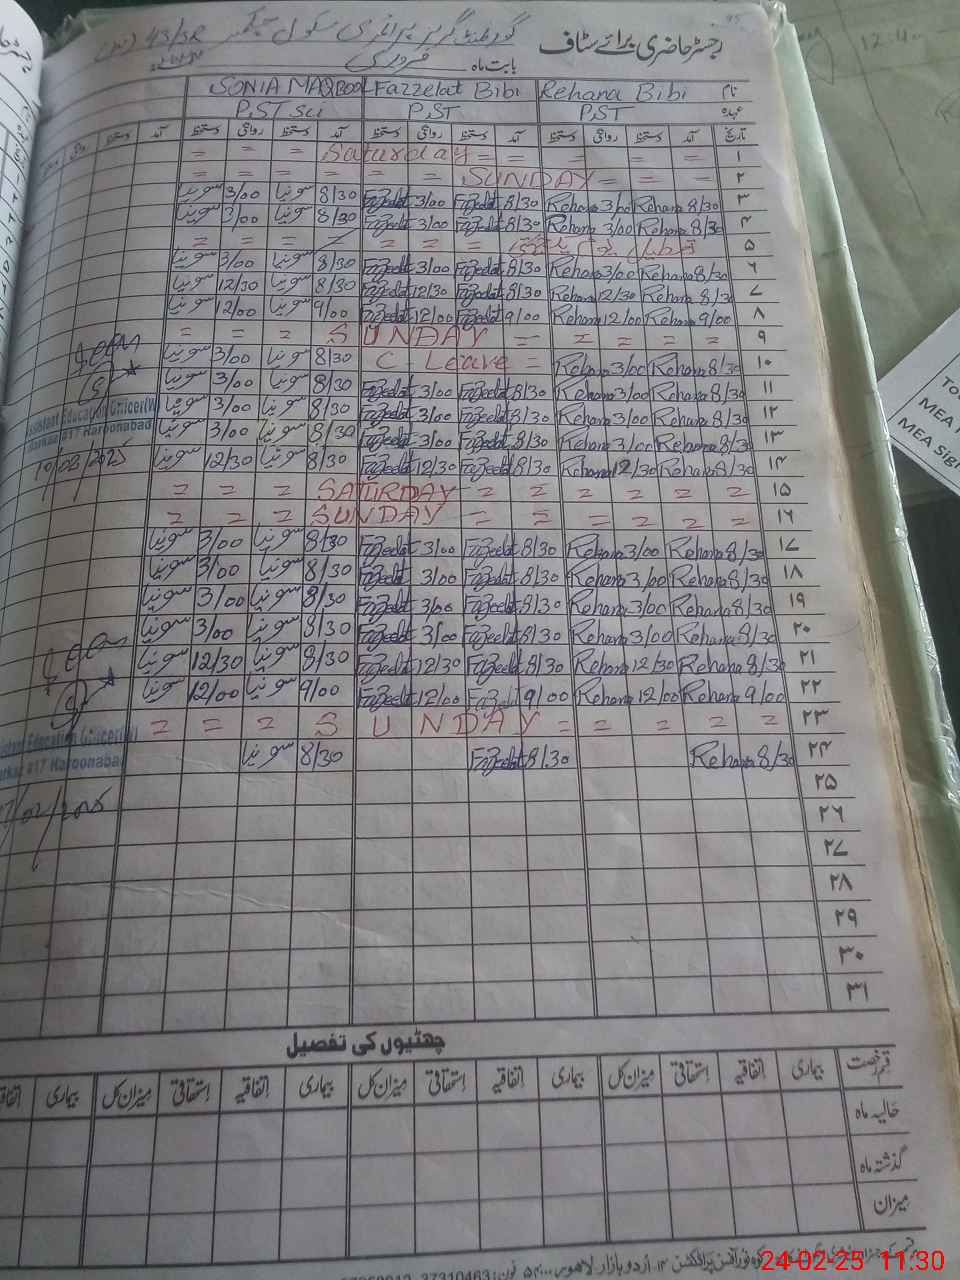 رجسٹر حاضری برائے سٹاف گورنمنٹ گرلز پرائمری سکول چک نمبر 43/3R
بابت ماہ فروری
نام Rehana Bibi Fazzelat Bibi SONIA MAQBOOL
عہدہ P.ST P.ST P.ST
تاریخ آمد دستخط روانگی دستخط آمد دستخط روانگی دستخط آمد دستخط روانگی دستخط آمد
۱ = = = = Saturday = = = = = =
۲ = = = = = = = SUNDAY = = =
۳ 8/30 Rehana 3/00 Rehana 8/30 Fazeelat 3/00 Fazeelat 8/30 سونیا 3/00 سونیا
۴ 8/30 Rehana 3/00 Rehana 8/30 Fazeelat 3/00 Fazeelat 8/30 سونیا 3/00 سونیا
۵ = = = = = = = تعطیل یوم یکجہتی
۶ 8/30 Rehana 3/00 Rehana 8/30 Fazeelat 3/00 Fazeelat 8/30 سونیا 3/00 سونیا
۷ 8/30 Rehana 12/30 Rehana 8/30 Fazeelat 12/30 Fazeelat 8/30 سونیا 12/30 سونیا
۸ 9/00 Rehana 12/00 Rehana 9/00 Fazeelat 12/00 Fazeelat 9/00 سونیا 12/00 سونیا
۹ = = = SUNDAY = = = = =
۱۰ 8/30 Rehana 3/00 Rehana C-Leave = 8/30 سونیا 3/00 سونیا
۱۱ 8/30 Rehana 3/00 Rehana 8/30 Fazeelat 3/00 Fazeelat 8/30 سونیا 3/00 سونیا
۱۲ 8/30 Rehana 3/00 Rehana 8/30 Fazeelat 3/00 Fazeelat 8/30 سونیا 3/00 سونیا
۱۳ 8/30 Rehana 3/00 Rehana 8/30 Fazeelat 3/00 Fazeelat 8/30 سونیا 3/00 سونیا
۱۴ 8/30 Rehana 12/30 Rehana 8/30 Fazeelat 12/30 Fazeelat 8/30 سونیا 12/30 سونیا
۱۵ = = = SATURDAY = = = = = =
۱۶ = = = SUNDAY = = = = = =
۱۷ 8/30 Rehana 3/00 Rehana 8/30 Fazeelat 3/00 Fazeelat 8/30 سونیا 3/00 سونیا
۱۸ 8/30 Rehana 3/00 Rehana 8/30 Fazeelat 3/00 Fazeelat 8/30 سونیا 3/00 سونیا
۱۹ 8/30 Rehana 3/00 Rehana 8/30 Fazeelat 3/00 Fazeelat 8/30 سونیا 3/00 سونیا
۲۰ 8/30 Rehana 3/00 Rehana 8/30 Fazeelat 3/00 Fazeelat 8/30 سونیا 3/00 سونیا
۲۱ 8/30 Rehana 12/30 Rehana 8/30 Fazeelat 12/30 Fazeelat 8/30 سونیا 12/30 سونیا
۲۲ 9/00 Rehana 12/00 Rehana 9/00 Fazeelat 12/00 Fazeelat 9/00 سونیا 12/00 سونیا
۲۳ = = = SUNDAY = = = = =
۲۴ 8/30 Rehana 8/30 Fazeelat 8/30 سونیا
۲۵
۲۶
۲۷
۲۸
۲۹
۳۰
۳۱
Assistant Education Officer(W)
Markaz #17 Haroonabad
10/02/2025
Assistant Education Officer(W)
Markaz #17 Haroonabad
چھٹیوں کی تفصیل
قسم رخصت بیماری اتفاقیہ استحقاقی میزان کل بیماری اتفاقیہ استحقاقی میزان کل بیماری اتفاقیہ استحقاقی میزان کل بیماری
حالیہ ماہ
گذشتہ ماہ
میزان
12:40
MEA Sign
24-02-25 11:30